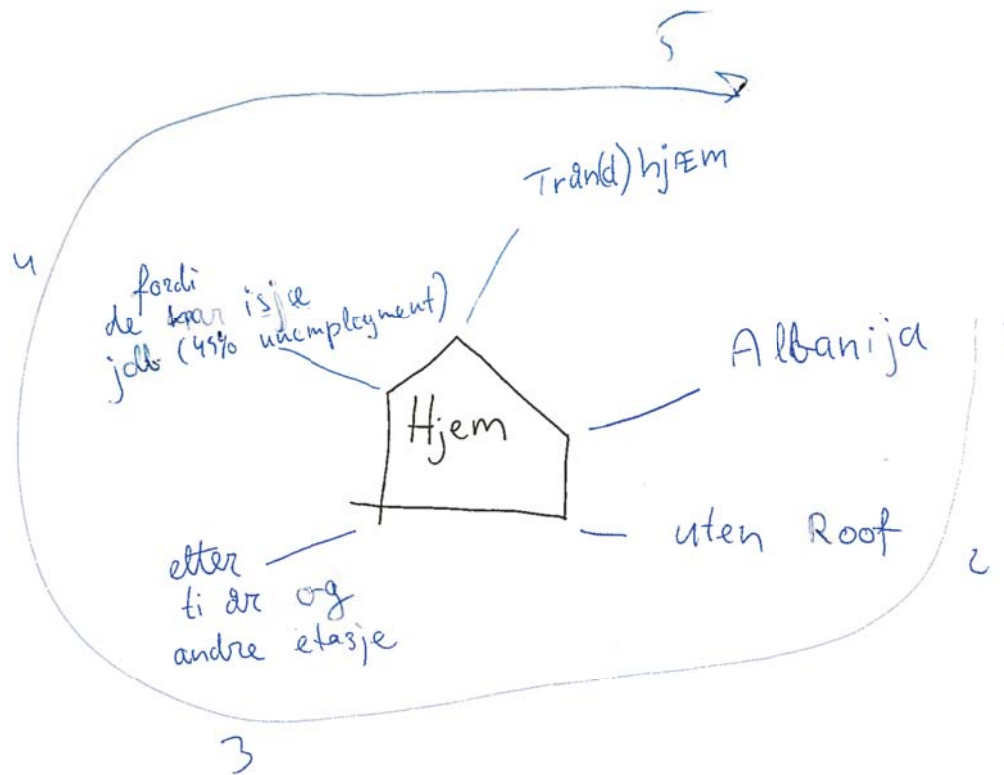 5
Trån(d)hjÆm
4
fordi
de har isjæ
job (45% unemployment)
Albanija
Hjem
uten Roof
2
etter
ti år og
andre etasje
3